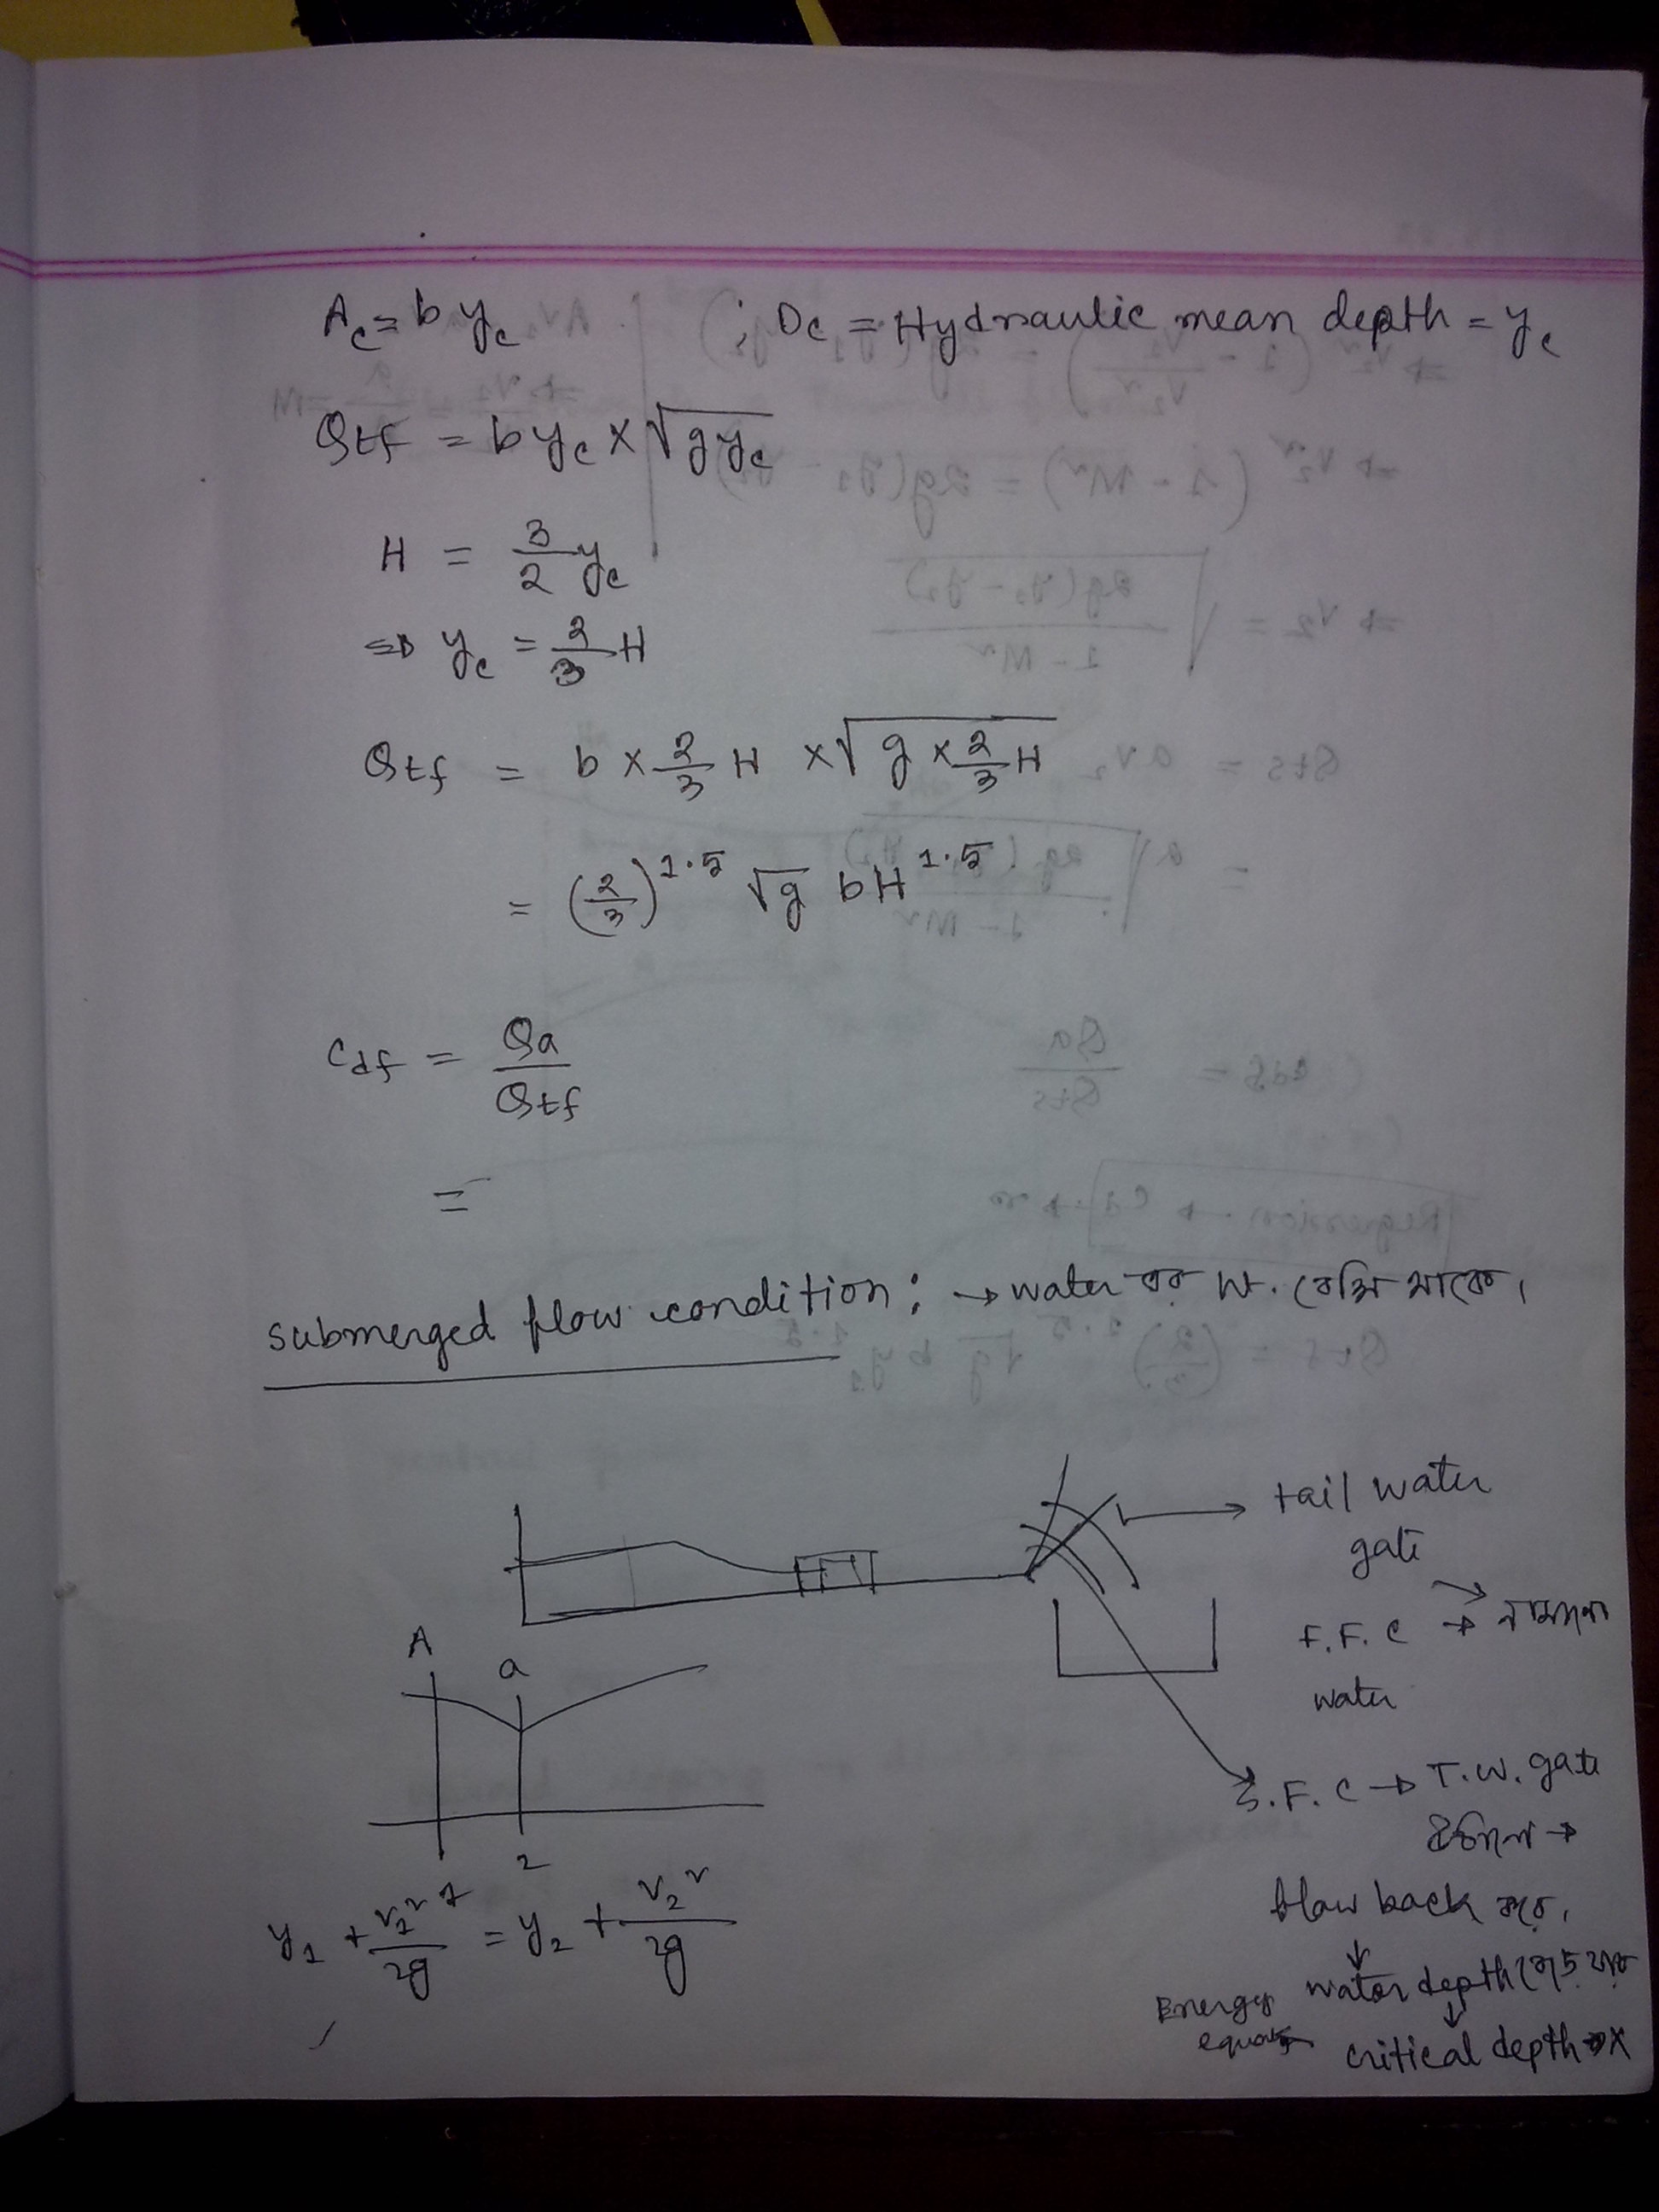 A_c = b y_c ; D_c = Hydraulic mean depth = y_c
Q_tf = b y_c × √(g y_c)
H = 3/2 y_c
⇒ y_c = 2/3 H
Q_tf = b × 2/3 H × √(g × 2/3 H)
= (2/3)^1.5 √g b H^1.5
C_df = Q_a / Q_tf
=
submerged flow condition : → water এর wt. বেশি থাকে।
tail water
gate
F.F.C → নামানো
water
A
a
2
S.F.C → T.W. gate
→
flow back করে,
↓
water depth বেড়ে যায়
Energy
↓
critical depth → x
y_1 + v_1² / 2g = y_2 + v_2² / 2g